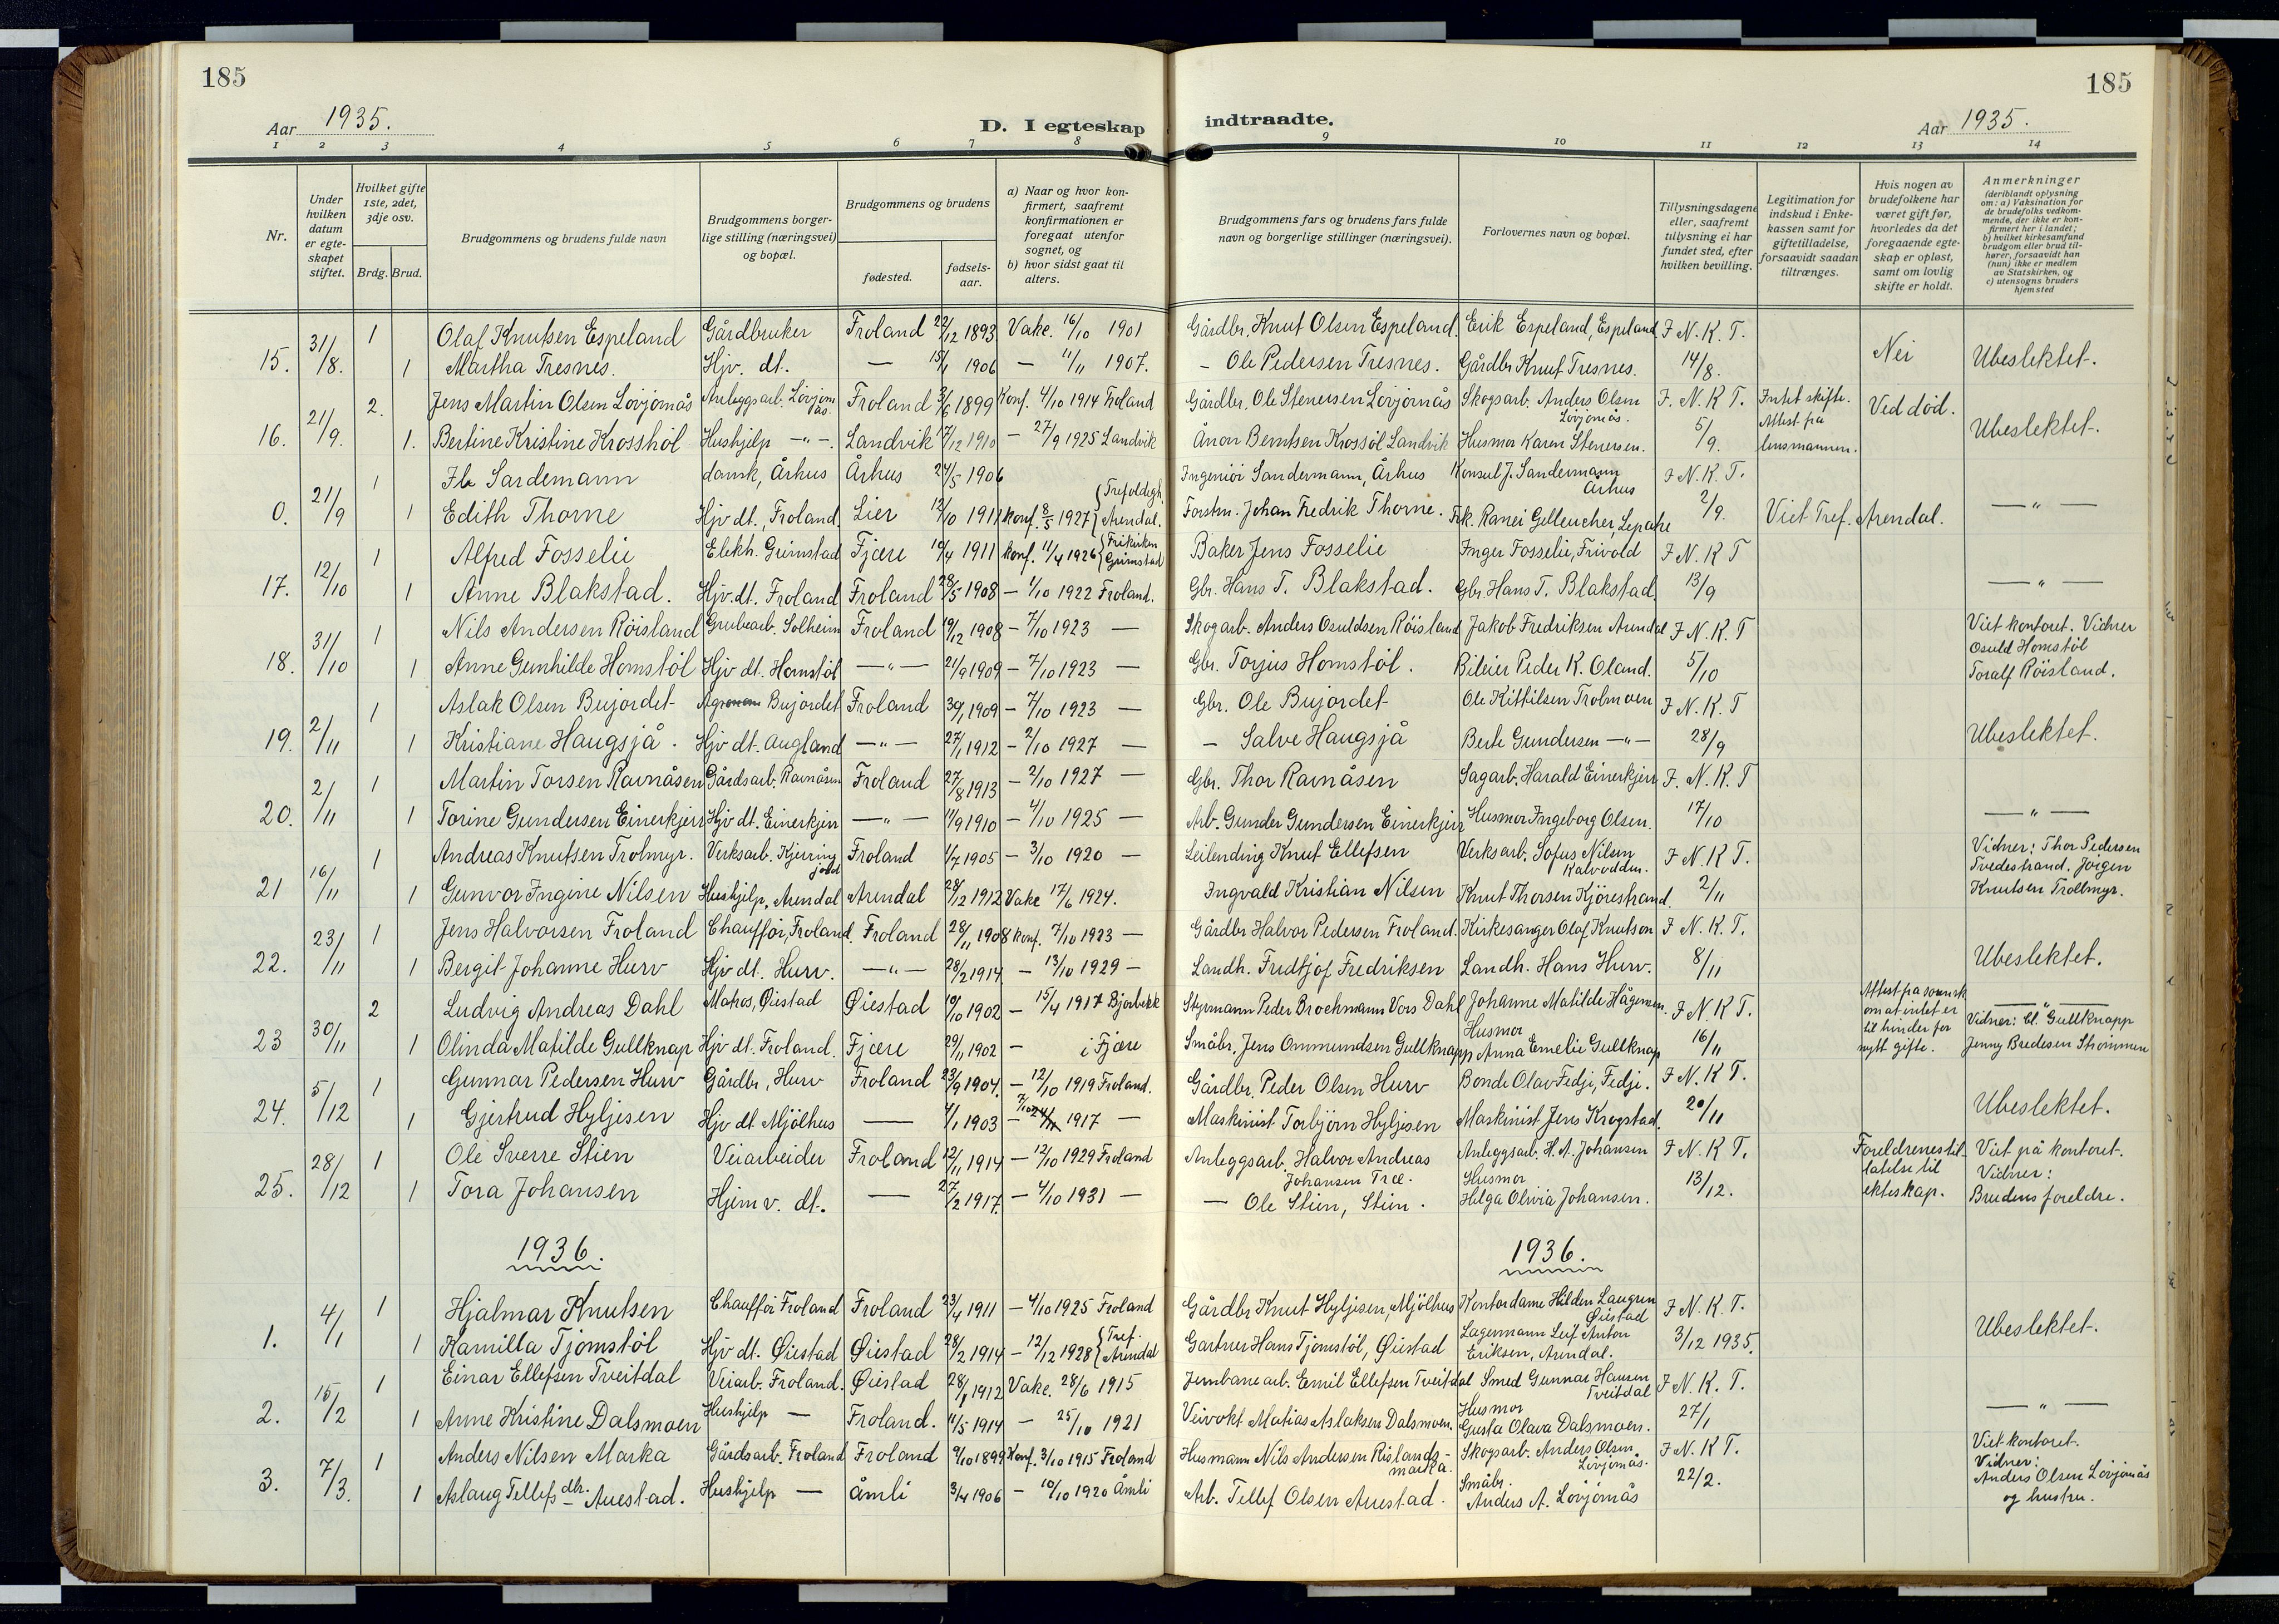 185
185
Aar 1935.
D. I egteskap indtraadte.
Aar 1935.
1 2 3 4 5 6 7 8 9 10 11 12 13 14
Nr.
Under hvilken datum er egteskapet stiftet.
Hvilket gifte 1ste, 2det, 3dje osv.
Brdg. Brud.
Brudgommens og brudens fulde navn
Brudgommens borgerlige stilling (næringsvei) og bopæl.
Brudgommens og brudens
fødested.
fødselsaar.
a) Naar og hvor konfirmert, saafremt konfirmationen er foregaat utenfor sognet, og
b) hvor sidst gaat til alters.
Brudgommens fars og brudens fars fulde navn og borgerlige stillinger (næringsvei).
Forlovernes navn og bopæl.
Tillysningsdagene eller, saafremt tillysning ei har fundet sted, efter hvilken bevilling.
Legitimation for indskud i Enkekassen samt for giftetilladelse, forsaavidt saadan tiltrænges.
Hvis nogen av brudefolkene har været gift før, hvorledes da det foregaaende egteskap er opløst, samt om lovlig skifte er holdt.
Anmerkninger
(deriblandt oplysning om: a) Vaksination for de brudefolks vedkommende, der ikke er konfirmert her i landet; b) hvilket kirkesamfund brudgom eller brud tilhører, forsaavidt han (hun) ikke er medlem av Statskirken, og c) utensogns bruders hjemsted
15. 31/8. 1 Olaf Knutsen Espeland Gårdbruker Froland 22/12 1893 Vake. 16/10 1901 Gårdbr. Knut Olsen Espeland. Erik Espeland, Espeland F. N. K. T.
1 Martha Tresnes. Hjv. dt. — 15/1 1906 — 11/11 1907. - Ole Pedersen Tresnes. Gårdbr Knut Tresnes. 14/8. Nei Ubeslektet.
16. 21/9. 2. Jens Martin Olsen Lövjomås Anleggsarb. Lövjomås Froland 3/6 1899 Konf. 4/10 1914 Froland Gårdbr. Ole Stenersen Lövjomås Skogsarb. Anders Olsen Lövjomås. F. N. K T. Intet skifte. Ved död.
1. Bertine Kristine Krosshöl Hushjelp -"-. Landvik 17/12 1910 - 27/9 1925 Landvik Ånon Berntsen Krossöl Landvik Husmor Karen Stenersen. 5/9. Attest fra lensmannen. Ubeslektet.
0. 21/9 1 Ib Sardemann dansk, Århus Århus 24/5 1906 Ingeniör Sandermann, Århus Konsul J. Sandermann Århus F. N. K. T.
1 Edith Thorne Hjv dt., Froland Lier 12/10 1911 Konf. 8/5 1927 {Trefoldigh. Arendal. Forstm. Johan Fredrik Thorne. 2/9. Viet Tref. Arendal. — " —
17. 12/10 1 Alfred Fosselie Elekh. Grimstad Fjære 19/4 1911 Konf. 11/4 1926 {Frikirken Grimstad Baker Jens Fosselie Inger Fosselie, Frivold F N. K T
1 Anne Blakstad. Hjv. dt. Froland Froland 28/5 1908 — 1/10 1922 Froland. Gbr. Hans T. Blakstad. Gbr. Hans T. Blakstad. 13/9 — " —
18. 31/10 1 Nils Andersen Röisland Grubearb. Solheim Froland 19/12 1908 - 7/10 1923 — Skogarb. Anders Osuldsen Röisland Jakob Fredriksen Arendal F. N. K. T Viet kontoret. Vidner
1 Anne Gunhilde Homstöl Hjv dt. Homstöl —"— 21/9 1909 - 7/10 1923 — Gbr. Torjus Homstöl. Bileier Peder K. Oland. 5/10 Osuld Homstöl Toralf Röisland.
19. 2/11 1 Aslak Olsen Bujordet Agronom Bujordet Froland 30/1 1909 - 7/10 1923 — Gbr. Ole Bujordet Ole Kittilsen Trolmoen F. N. K. T
1 Kristiane Haugsjå. Hjv dt. Augland —"— 27/1 1912 - 2/10 1927 — - Salve Haugsjå Berte Gundersen —"— 28/9 Ubeslektet.
20. 2/11 1 Martin Torsen Ravnåsen Gårdsarb. Ravnåsen Froland 27/8 1913 - 2/10 1927 — Gbr. Thor Ravnåsen Sagarb. Harald Einerkjerr F. N. K. T
1 Torine Gundersen Einerkjerr Hjv dt. Einerkjerr —"— 14/9 1910 - 4/10 1925 — Arb. Gunder Gundersen Einerkjerr Husmor Ingeborg Olsen. 17/10 — " —
21 16/11 1 Andreas Knutsen Trolmyr. Verksarb. Froland 1/7 1905 - 3/10 1920 — Leilending Knut Ellefsen Verksarb. Sofus Nilsen Kalvodden. F N. K T. Vidner: Thor Pedersen Tvedestrand. Jörgen
1 Gunvor Ingine Nilsen Hushjelp, Arendal Arendal 28/12 1912 Vake 17/6 1924. Ingvald Kristian Nilsen Knut Thorsen Kjörestrand. 2/11 Knutsen Trollmyr.
22. 23/11 1 Jens Halvorsen Froland Chafför, Froland. Froland 28/11 1908 Konf. 7/10 1923 — Gårdbr Halvor Pedersen Froland. Kirkesanger Olaf Knutson F N. K. T.
1 Bergit Johanne Hurv Hjv dt. Hurv. —"— 28/2 1914 - 13/10 1929 - Landh. Fridtjof Fredriksen Landh. Hans Hurv. 8/11 Ubeslektet.
23 30/11 2 Ludvig Andreas Dahl Matros, Øiestad Øiestad 10/10 1902 - 15/4 1917 Bjorbekk Styrmann Peder Brochmann Vors Dahl Johanne Matilde Hågensen. F N. K T. Attest fra sorensk. om at intet er til hinder for nytt gifte. — " —
1 Olinda Matilde Gullknap Hjv dt. Froland. Fjære 29/11 1902 - i Fjære Småbr. Jens Ommundsen Gullknapp Husmor Anna Emelie Gullknap 16/11 Vidner: Cl. Gullknapp Jenny Bredesen Strømmen
24. 5/12 1 Gunnar Pedersen Hurv Gårdbr, Hurv Froland 23/9 1904. - 12/10 1919 Froland. Gårdbr. Peder Olsen Hurv Bonde Olav Fedji, Fedji. F N. K T.
1 Gjertrud Hyljesen Hjv dt Mjölhus — 4/1 1903 - 7/10 1917 — Maskinist Torbjörn Hyljesen Maskinist Jens Krogstad. 20/11 Ubeslektet.
25. 28/12 1 Ole Sverre Stien Veiarbeider Froland 12/11 1914 - 12/10 1929 Froland Anleggsarb. Halvor Andreas Johansen Træ. Anleggsarb. H. A. Johansen F N. K T. Foreldrenes tillatelse til ekteskap. Viet på kontoret.
1 Tora Johansen Hjem v. dt. — 27/2 1917. - 4/10 1931 — — Ole Stien, Stien. Husmor Helga Olivia Johansen. 13/12. Vidner: Brudens foreldre.
1936.
1936.
1. 4/1 1 Hjalmar Knutsen Chafför Froland Froland 23/4 1911 - 4/10 1925 Froland Gårdbr Knut Hyljesen, Mjölhus Kontordame Hilden Langrun Øiestad F N. K. T.
1 Kamilla Tjomstöl Hjv dt. Øiestad Øiestad 28/2 1914 - 12/12 1928 {Tref. Arendal Gartner Hans Tjomstöl, Øiestad Lagermann Leif Anton Eriksen, Arendal. 3/12 1935. Ubeslektet.
2. 15/2 1 Einar Ellefsen Tveitdal Veiarb. Froland. Øiestad 28/8 1912 Vake. 28/6 1915 Jernbanearb. Emil Ellefsen Tveitdal Smed Gunnar Hansen Tveitdal F N. K. T.
1 Anne Kristine Dalsmoen Hushjelp — Froland. 11/5 1914 - 25/10 1921 Veivokt. Matias Aslaksen Dalsmoen. Husmor Gusta Olava Dalsmoen. 27/1 — " —
3. 7/3. 1 Anders Nilsen Marka Gårdsarb. Froland Froland 9/10 1899 Konf. 3/10 1915 Froland Husmann Nils Andersen Rislandsmarka. Skogsarb. Anders Olsen Lövjomås. F N. K T. Viet kontoret. Vidner:
1 Aslaug Tellefsdtr. Auestad. Hushjelp — Åmli 3/4 1906 - 10/10 1920 Åmli Arb. Tellef Olsen Auestad. Småbr. Anders A. Lövjomås 22/2. Anders Olsen Lövjomås og hustru.